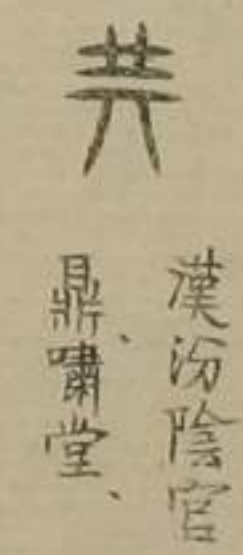 共
漢汾陰官
鼎、嘯堂、